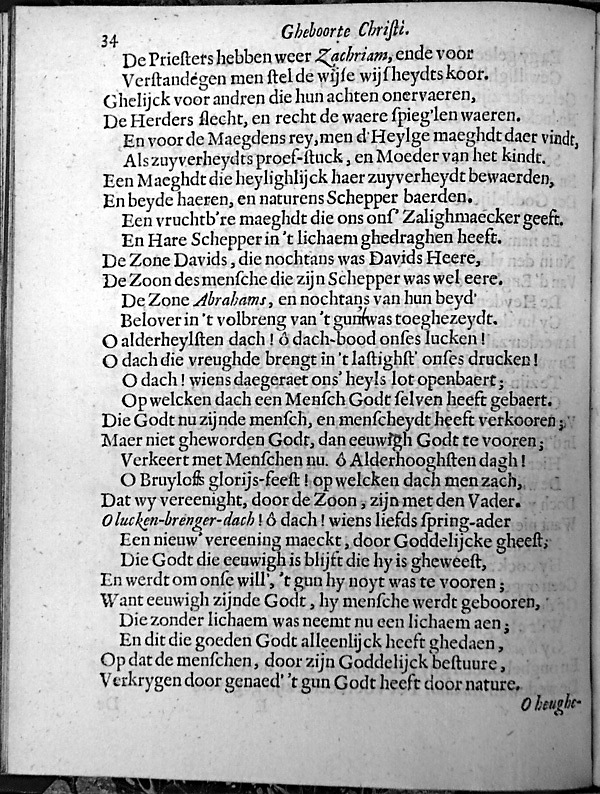 34
Gheboorte Chriſti.
De Prieſters hebben weer Zachriam, ende voor
Verſtandegen men ſtel de wijſe wijſheydts koor.
Ghelijck voor andren die hun achten onervaeren,
De Herders ſlecht, en recht de waere ſpieg'len waeren.
En voor de Maegdens rey, men d'Heylge maeghdt daer vindt,
Als zuyverheydts proef-ſtuck, en Moeder van het kindt.
Een Maeghdt die heylighlijck haer zuyverheydt bewaerden,
En beyde haeren, en naturens Schepper baerden.
Een vruchtb're maeghdt die ons onſ' Zalighmaecker geeft.
En Hare Schepper in 't lichaem ghedraghen heeft.
De Zone Davids, die nochtans was Davids Heere,
De Zoon des menſche die zijn Schepper was wel eere.
De Zone Abrahams, en nochtans van hun beyd'
Belover in 't volbreng van 't gunt was toeghezeydt.
O alderheylſten dach! ô dach-bood onſes lucken!
O dach die vreughde brengt in 't laſtighſt' onſes drucken!
O dach! wiens daegeraet ons' heyls lot openbaert;
Op welcken dach een Menſch Godt ſelven heeft gebaert.
Die Godt nu zijnde menſch, en menſcheydt heeft verkooren;
Maer niet gheworden Godt, dan eeuwigh Godt te vooren;
Verkeert met Menſchen nu. ô Alderhooghſten dagh!
O Bruylofſs glorijs-feeſt! op welcken dach men zach,
Dat wy vereenight, door de Zoon, zijn met den Vader.
O lucken-brenger-dach! ô dach! wiens liefds ſpring-ader
Een nieuw' vereening maeckt, door Goddelijcke gheeſt;
Die Godt die eeuwigh is blijft die hy is gheweeſt,
En werdt om onſe will', 't gun hy noyt was te vooren;
Want eeuwigh zijnde Godt, hy menſche werdt gebooren,
Die zonder lichaem was neemt nu een lichaem aen;
En dit die goeden Godt alleenlijck heeft ghedaen,
Op dat de menſchen, door zijn Goddelijck beſtuure,
Verkrygen door genaed' 't gun Godt heeft door nature.
O heughe-